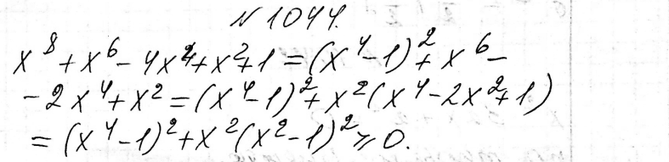 № 1044.
x⁸ + x⁶ - 4x⁴ + x² + 1 = (x⁴ - 1)² + x⁶ -
- 2x⁴ + x² = (x⁴ - 1)² + x²(x⁴ - 2x² + 1)
= (x⁴ - 1)² + x²(x² - 1)² ⩾ 0.